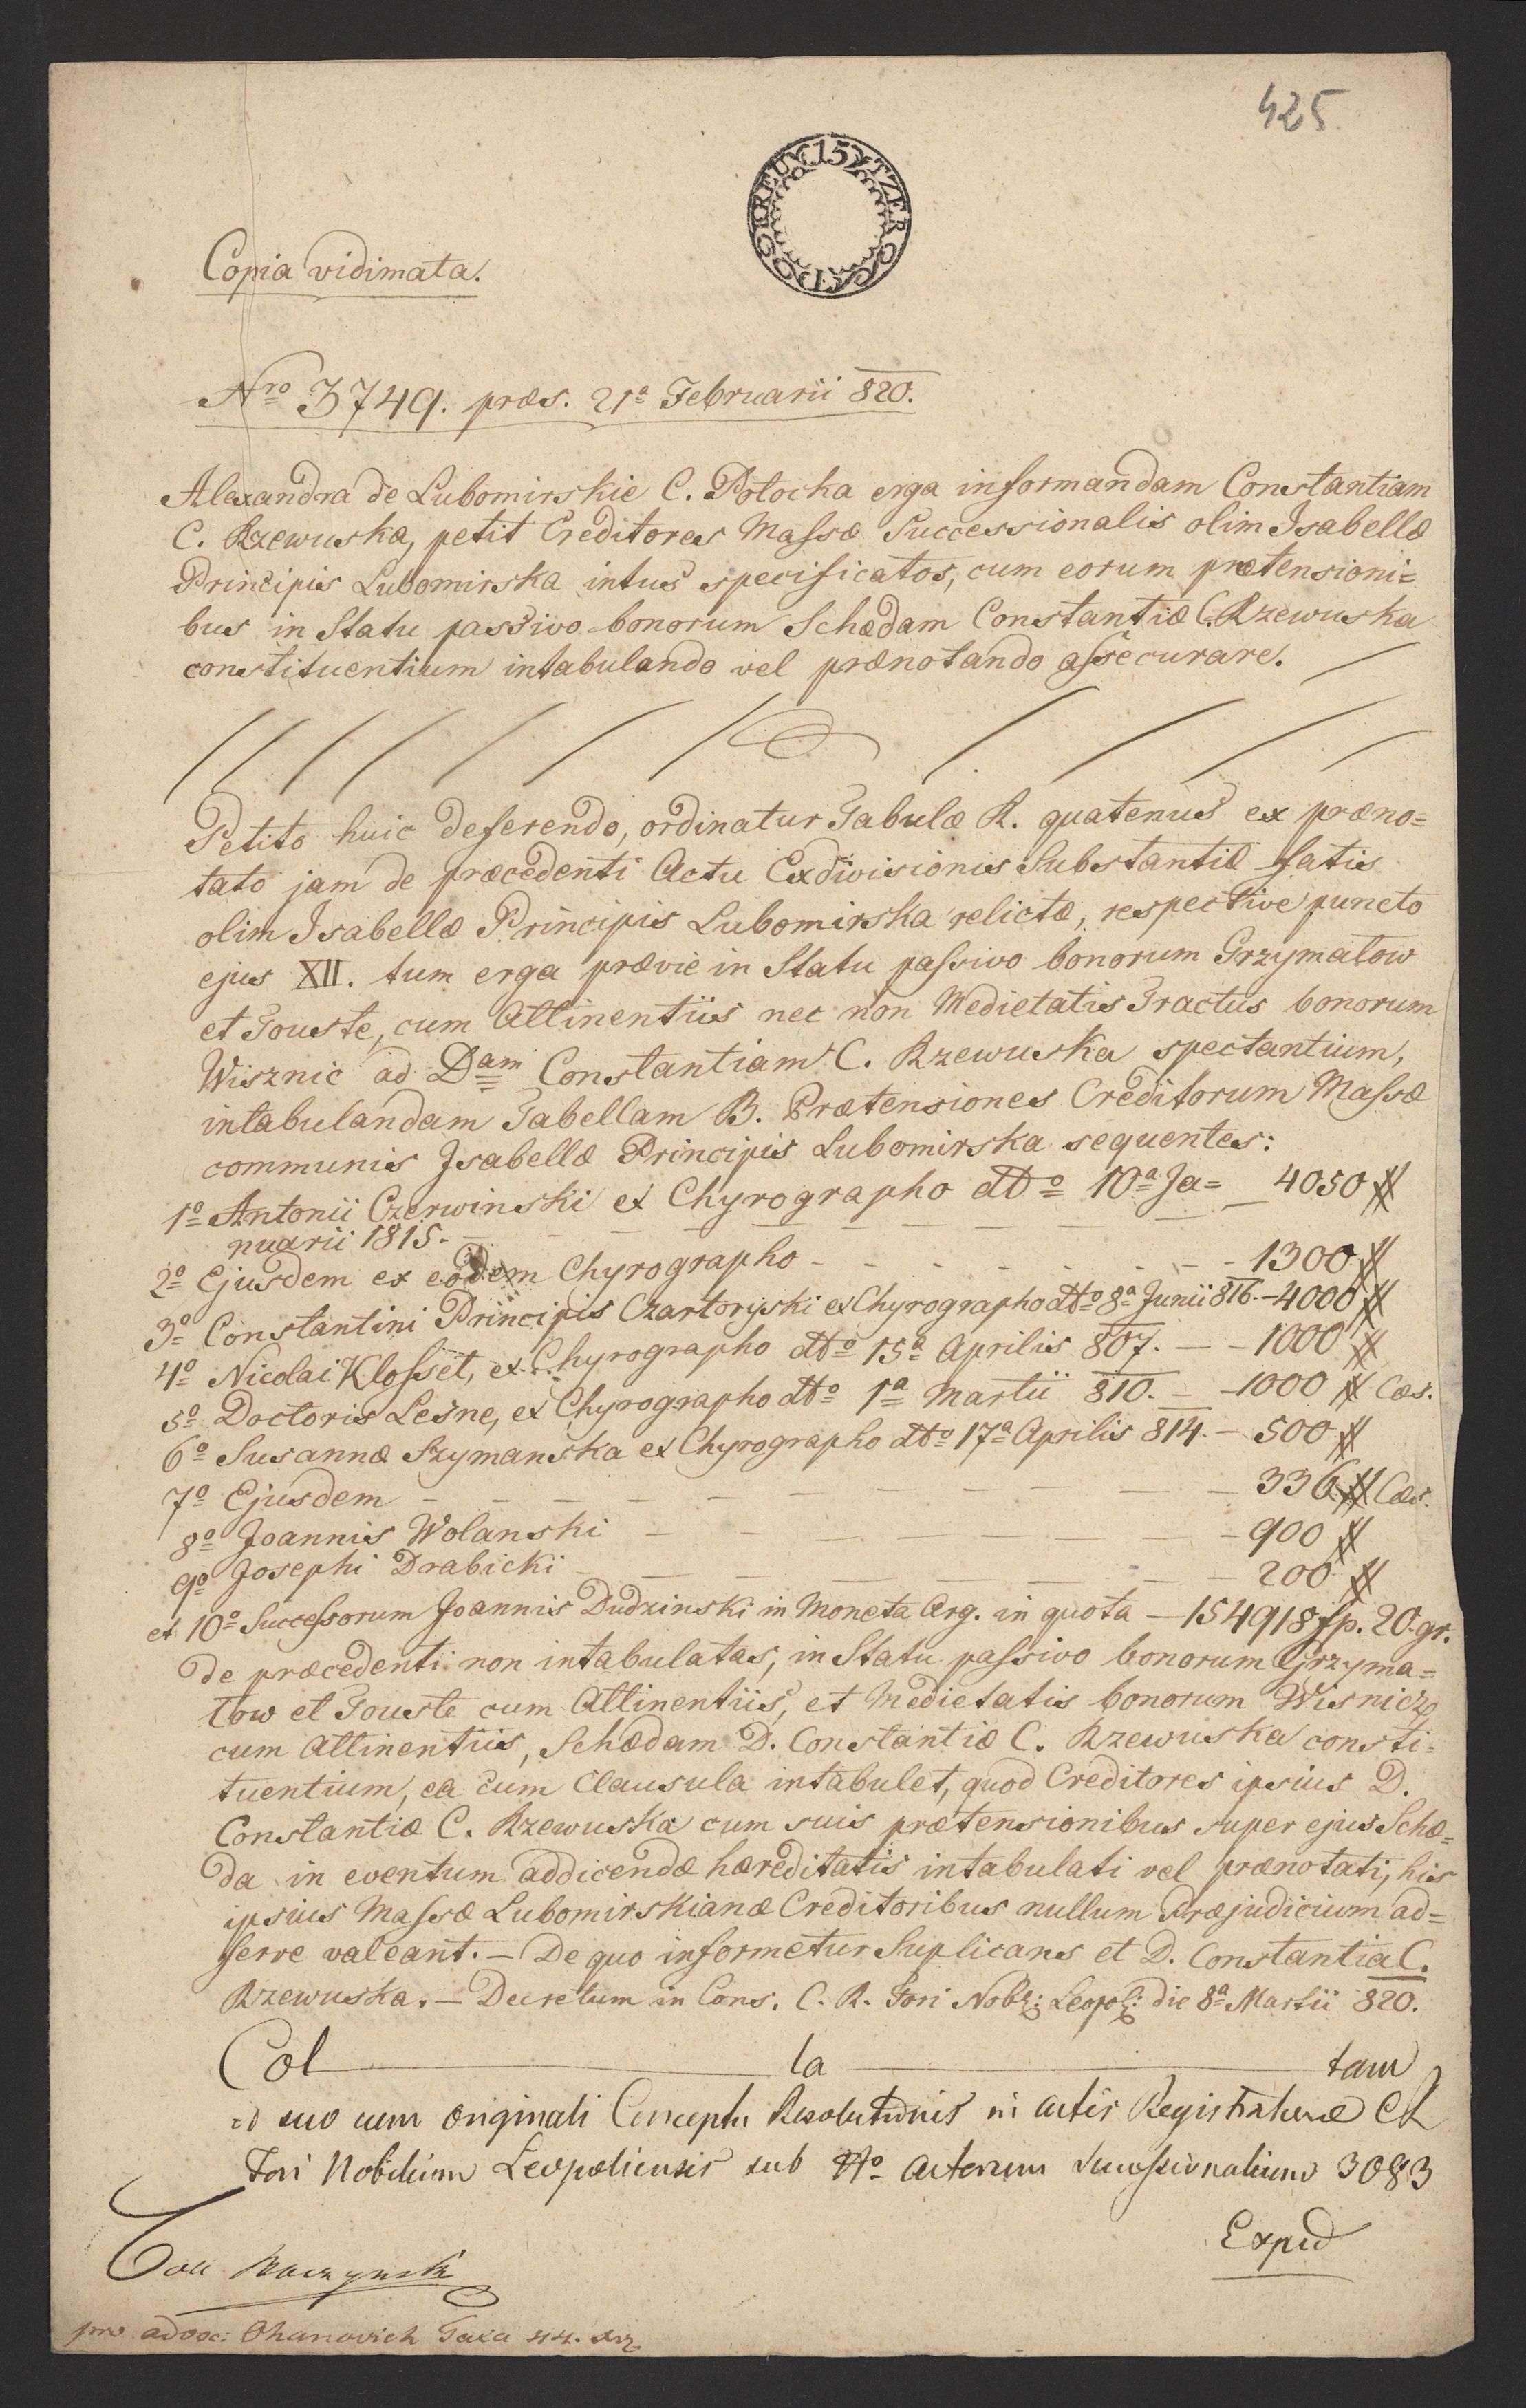 425
15 KREUTZER CCATDO
Copia vidimata.
Nro 3749. præs. 21a Februarii 820.
Alexandra de Lubomirskie C. Potocka erga informandam Constantiam
C. Rzewuska, petit Creditores Massæ Successionalis olim Isabellæ
Principis Lubomirska intus specificatos, cum eorum prætensioni=
bus in Statu passivo bonorum Schædam Constantiæ C. Rzewuska
constituentium intabulando vel prænotando assecurare.
Petito huic deferendo, ordinatur Tabulæ R. quatenus ex præno=
tato jam de præcedenti Actu Exdivisionis Substantiæ fatis
olim Isabellæ Principis Lubomirska relictæ, respective puncto
ejus XII. tum erga prævie in Statu passivo bonorum Grzymałow
et Touste, cum Attinentiis nec non Medietatis Tractus bonorum
Wisznic ad Dam Constantiam C. Rzewuska spectantium,
intabulandam Tabellam B. Prætensiones Creditorum Massæ
communis Isabellæ Principis Lubomirska sequentes:
1o Antonii Czerwinski ex Chyrographo dto 10a Ja= 4050 #
nuarii 1815.
2o Ejusdem ex eodem Chyrographo - 1300 #
3o Constantini Principis Czartoryski ex Chyrographo dto 8a Junii 816. - 4000 #
4o Nicolai Klosset, ex Chyrographo dto 15a Aprilis 807. - 1000 #
5o Doctoris Lesne, ex Chyrographo dto 1a Martii 810. - 1000 # Cæs.
6o Susannæ Szymanska ex Chyrographo dto 17a Aprilis 814. - 500 #
7o Ejusdem - 336 # Cæs.
8o Joannis Wolanski - 900 #
9o Josephi Drabicki - 200 #
et 10o Successorum Joannis Dudzinski in Moneta Arg. in quota - 154918 fp. 20. gr.
de præcedenti non intabulatas, in Statu passivo bonorum Grzyma=
łow et Touste cum Attinentiis, et Medietatis bonorum Wisnicz
cum Attinentiis, Schædam D. Constantiæ C. Rzewuska consti=
tuentium, ea cum Clausula intabulet, quod Creditores ipsius D.
Constantiæ C. Rzewuska cum suis prætensionibus super ejus Schæ=
da in eventum addicendæ hæreditatis intabulati vel prænotati, his
ipsius Massæ Lubomirskianæ Creditoribus nullum Præjudicium ad=
ferre valeant. - De quo informetur Suplicans et D. Constantia C.
Rzewuska. - Decretum in Cons. C. R. Fori Nobl: Leopol: die 8a Martii 820.
Col la tam
suo cum originali Conceptu Resolutionis in actis Registraturæ CR
Fori Nobilium Leopoliensis sub No actorum Successionalium 3083
Exped
pro advoc: Ohanovich Taxa 44. xr